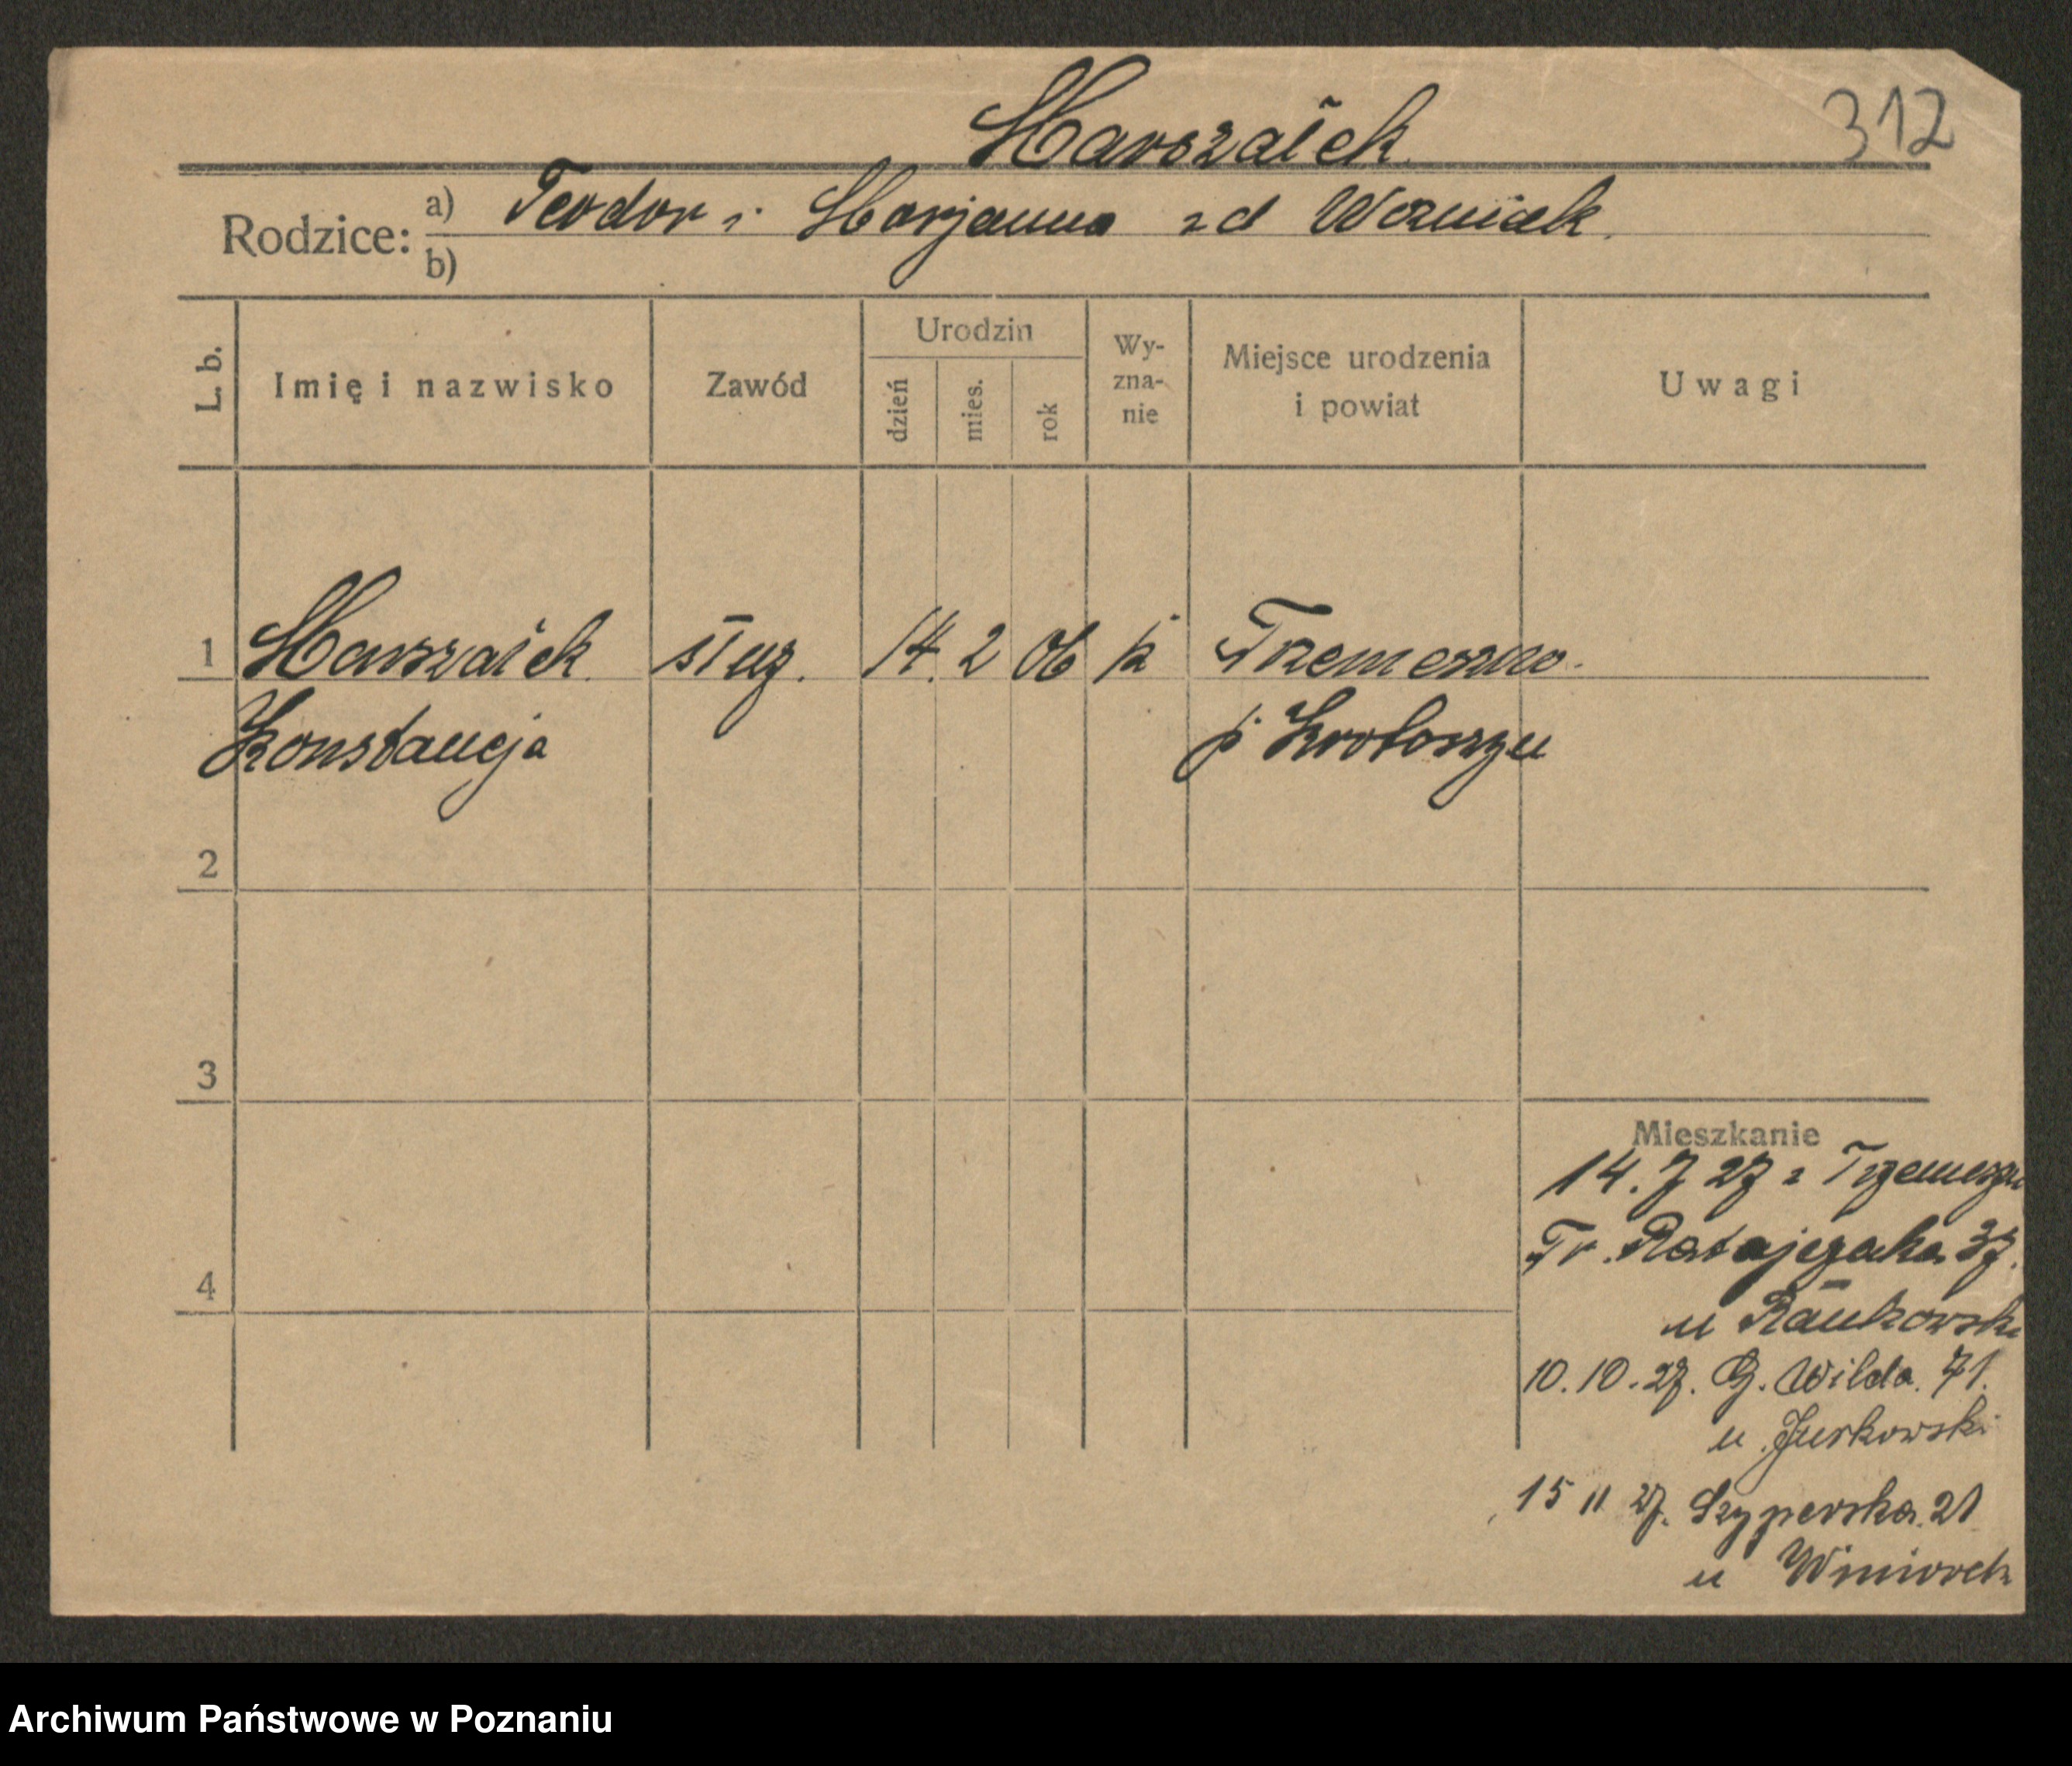 Marszałek
312
Rodzice: a) Teodor i Marjanna zd Wozniak.
b)
L. b.
Imię i nazwisko
Zawód
Urodzin
dzień
mies.
rok
Wy-
zna-
nie
Miejsce urodzenia
i powiat
Uwagi
1 Marszałek służ. 14. 2 06 k Trzemeszno.
Konstancja p Krotoszyn
2
3
4
Mieszkanie
14. 7 27 z Trzemeszn
Fr. Ratajczaka 37.
u
10. 10. 27. G. Wilda. 71.
u Jurkowski
15 11 27. Szyperska. 21
u
Archiwum Państwowe w Poznaniu